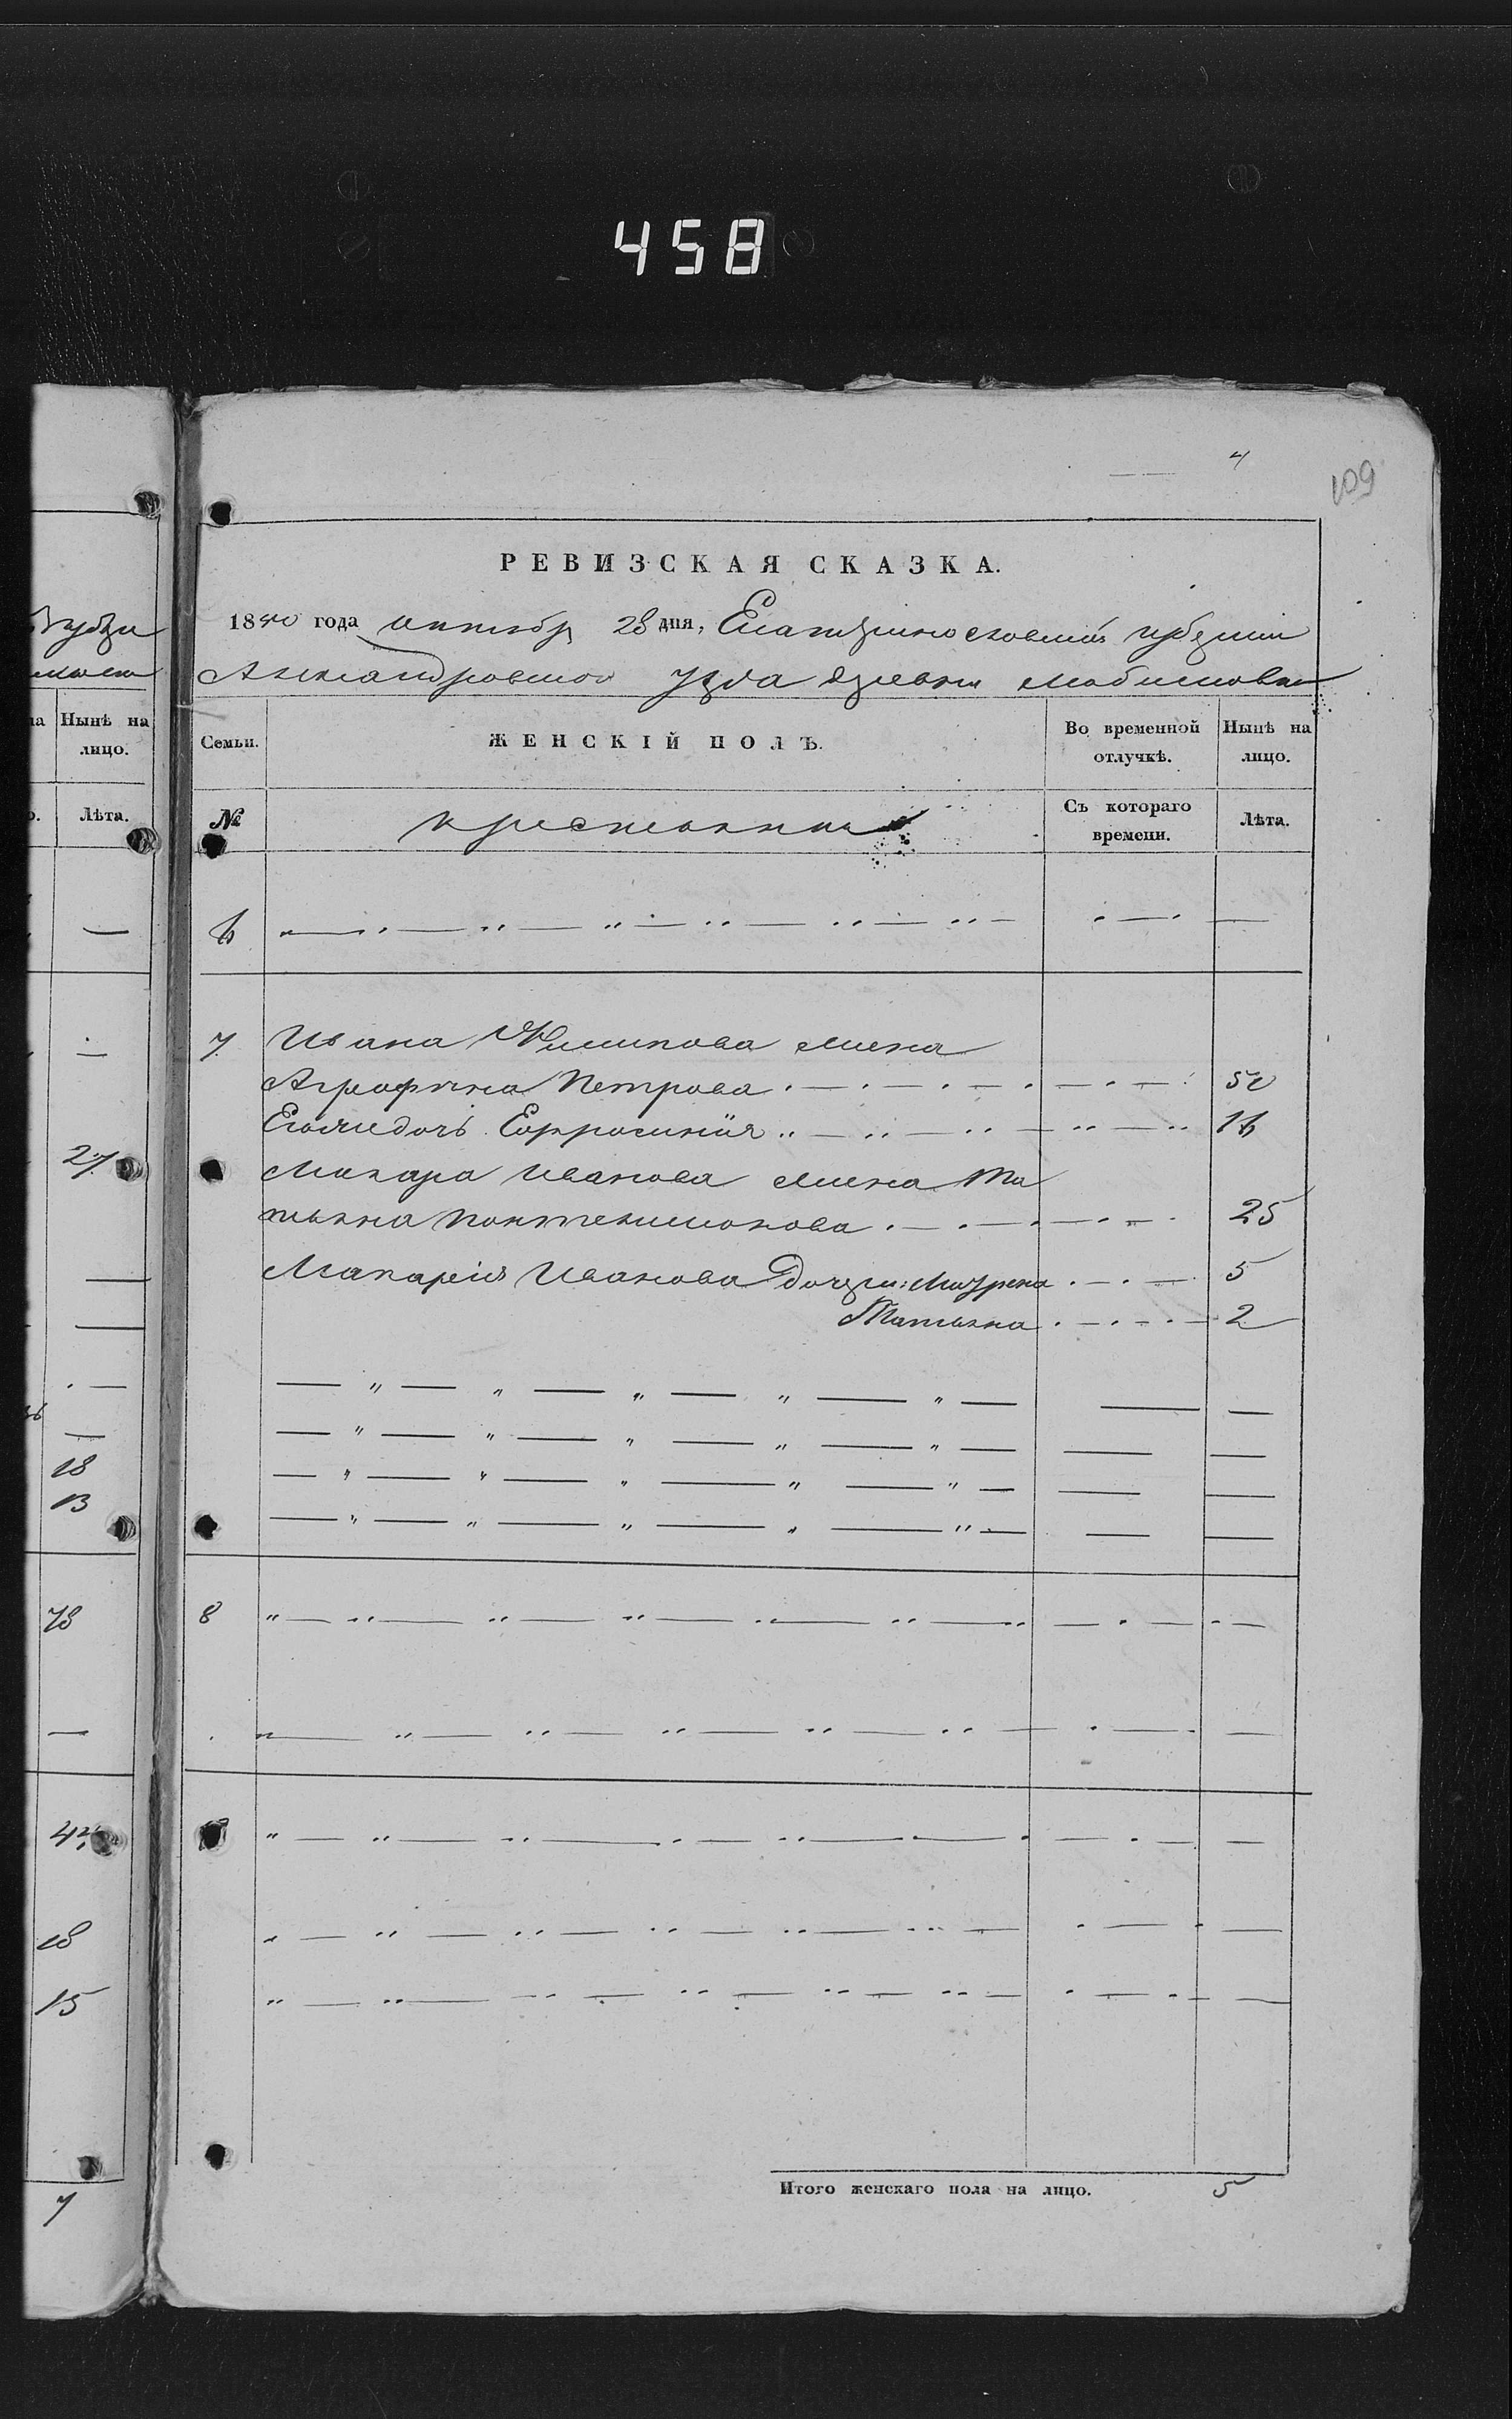 458
4
109
РЕВИЗСКАЯ СКАЗКА.
1850 года октября 28 дня, Екатеринославской губернии
Александровского уезда деревни Любимовки
Нынѣ на
лицо.
Семьи.
ЖЕНСКІЙ ПОЛЪ.
Во временной
отлучкѣ.
Нынѣ на
лицо.
Лѣта.
№
крестьяне
Съ котораго
времени.
Лѣта.
—
6 — " — " — " — " — " — " — · — · —
7 Ивана Филипова жена
Агрофина Петрова · — · — · — · — · — · 50
Егоже дочь Ефросиния " — " — " — " — " 16
27
Макара Иванова жена Та
тьяна Пантелимонова · — · — · — · — · 25
Макария Иванова дочери: Мавра · — · — · 5
Татьяна · — · — · — 2
— " — " — " — " — " — — —
— " — " — " — " — " — — —
— " — " — " — " — " — — —
— " — " — " — " — " — — —
18
13
78
8 " — " — " — " — " — " — " — · — · —
" — " — " — " — " — " — · — · —
" — " — " — " — " — · — · — · — —
18
" — " — " — " — " — " — · — · —
15
" — " — " — " — " — " — · — · — —
Итого женскаго пола на лицо. 5
7